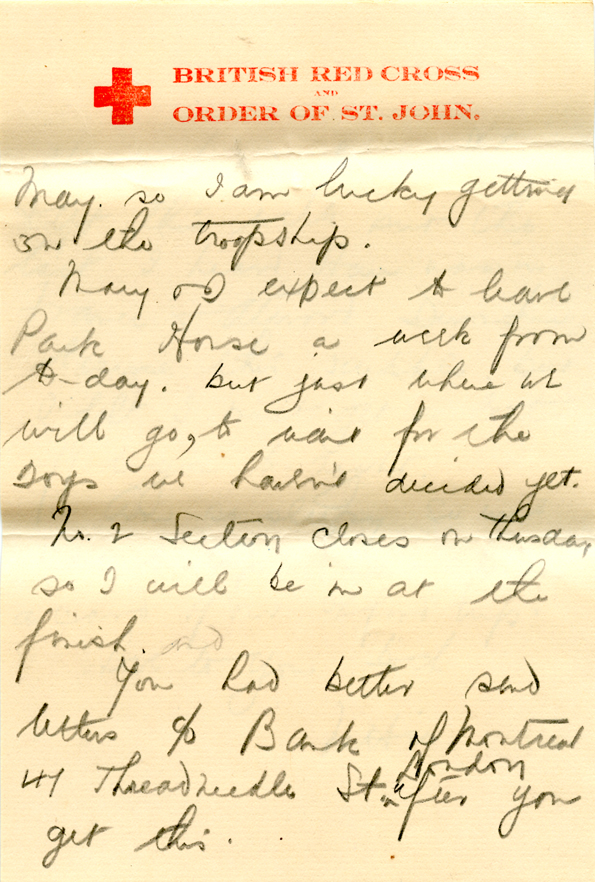 BRITISH RED CROSS
AND
ORDER OF ST. JOHN.
May. so I am lucky getting
on the troopship.
Mary & I expect to leave
Park House a week from
to-day. but just where we
will go, to wait for the
boys we haven't decided yet.
No. 2 Section closes on Tuesday
so I will be in at the
finish. and
You had better send
letters c/o Bank of Montreal
47 Threadneedle St. London after you
get this.